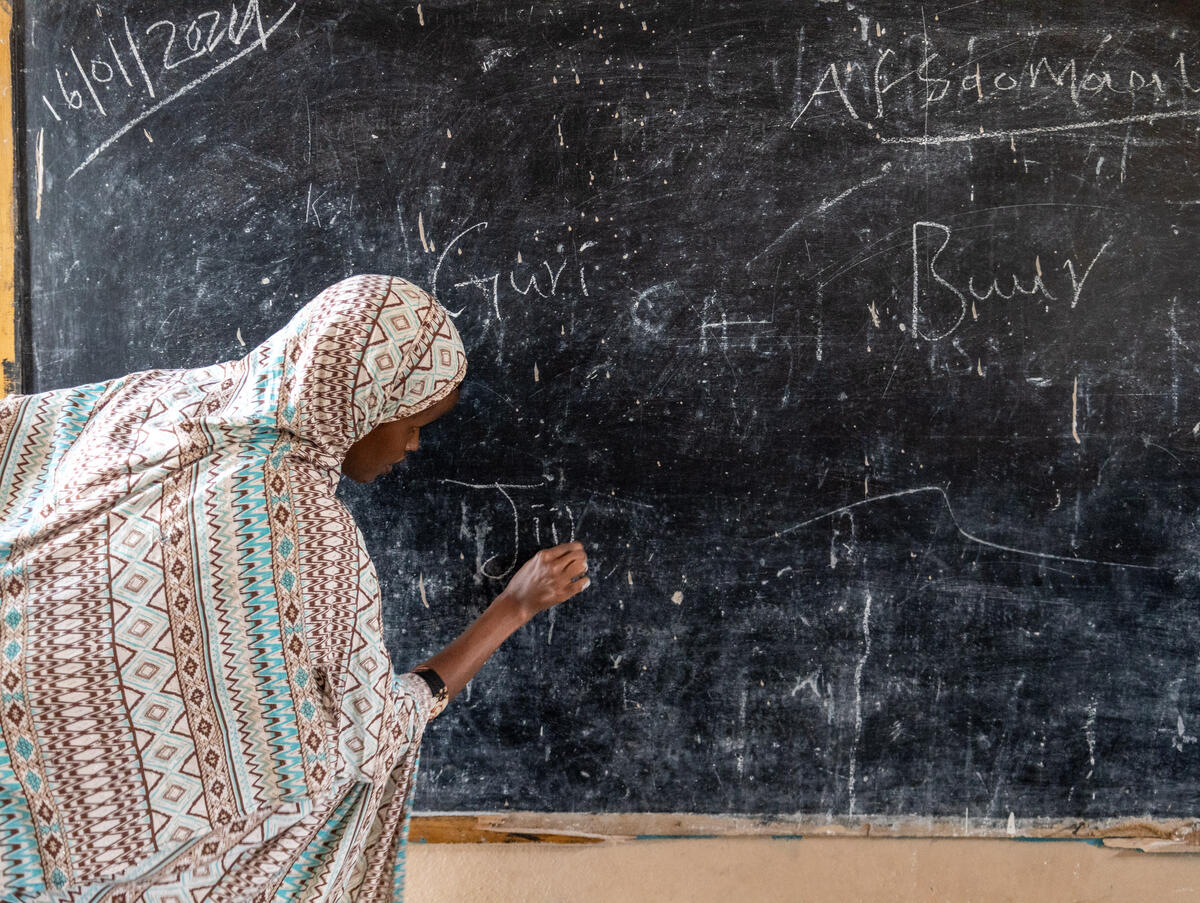 16/01/2024
AfSdomaali
Guri
Buur
Jin